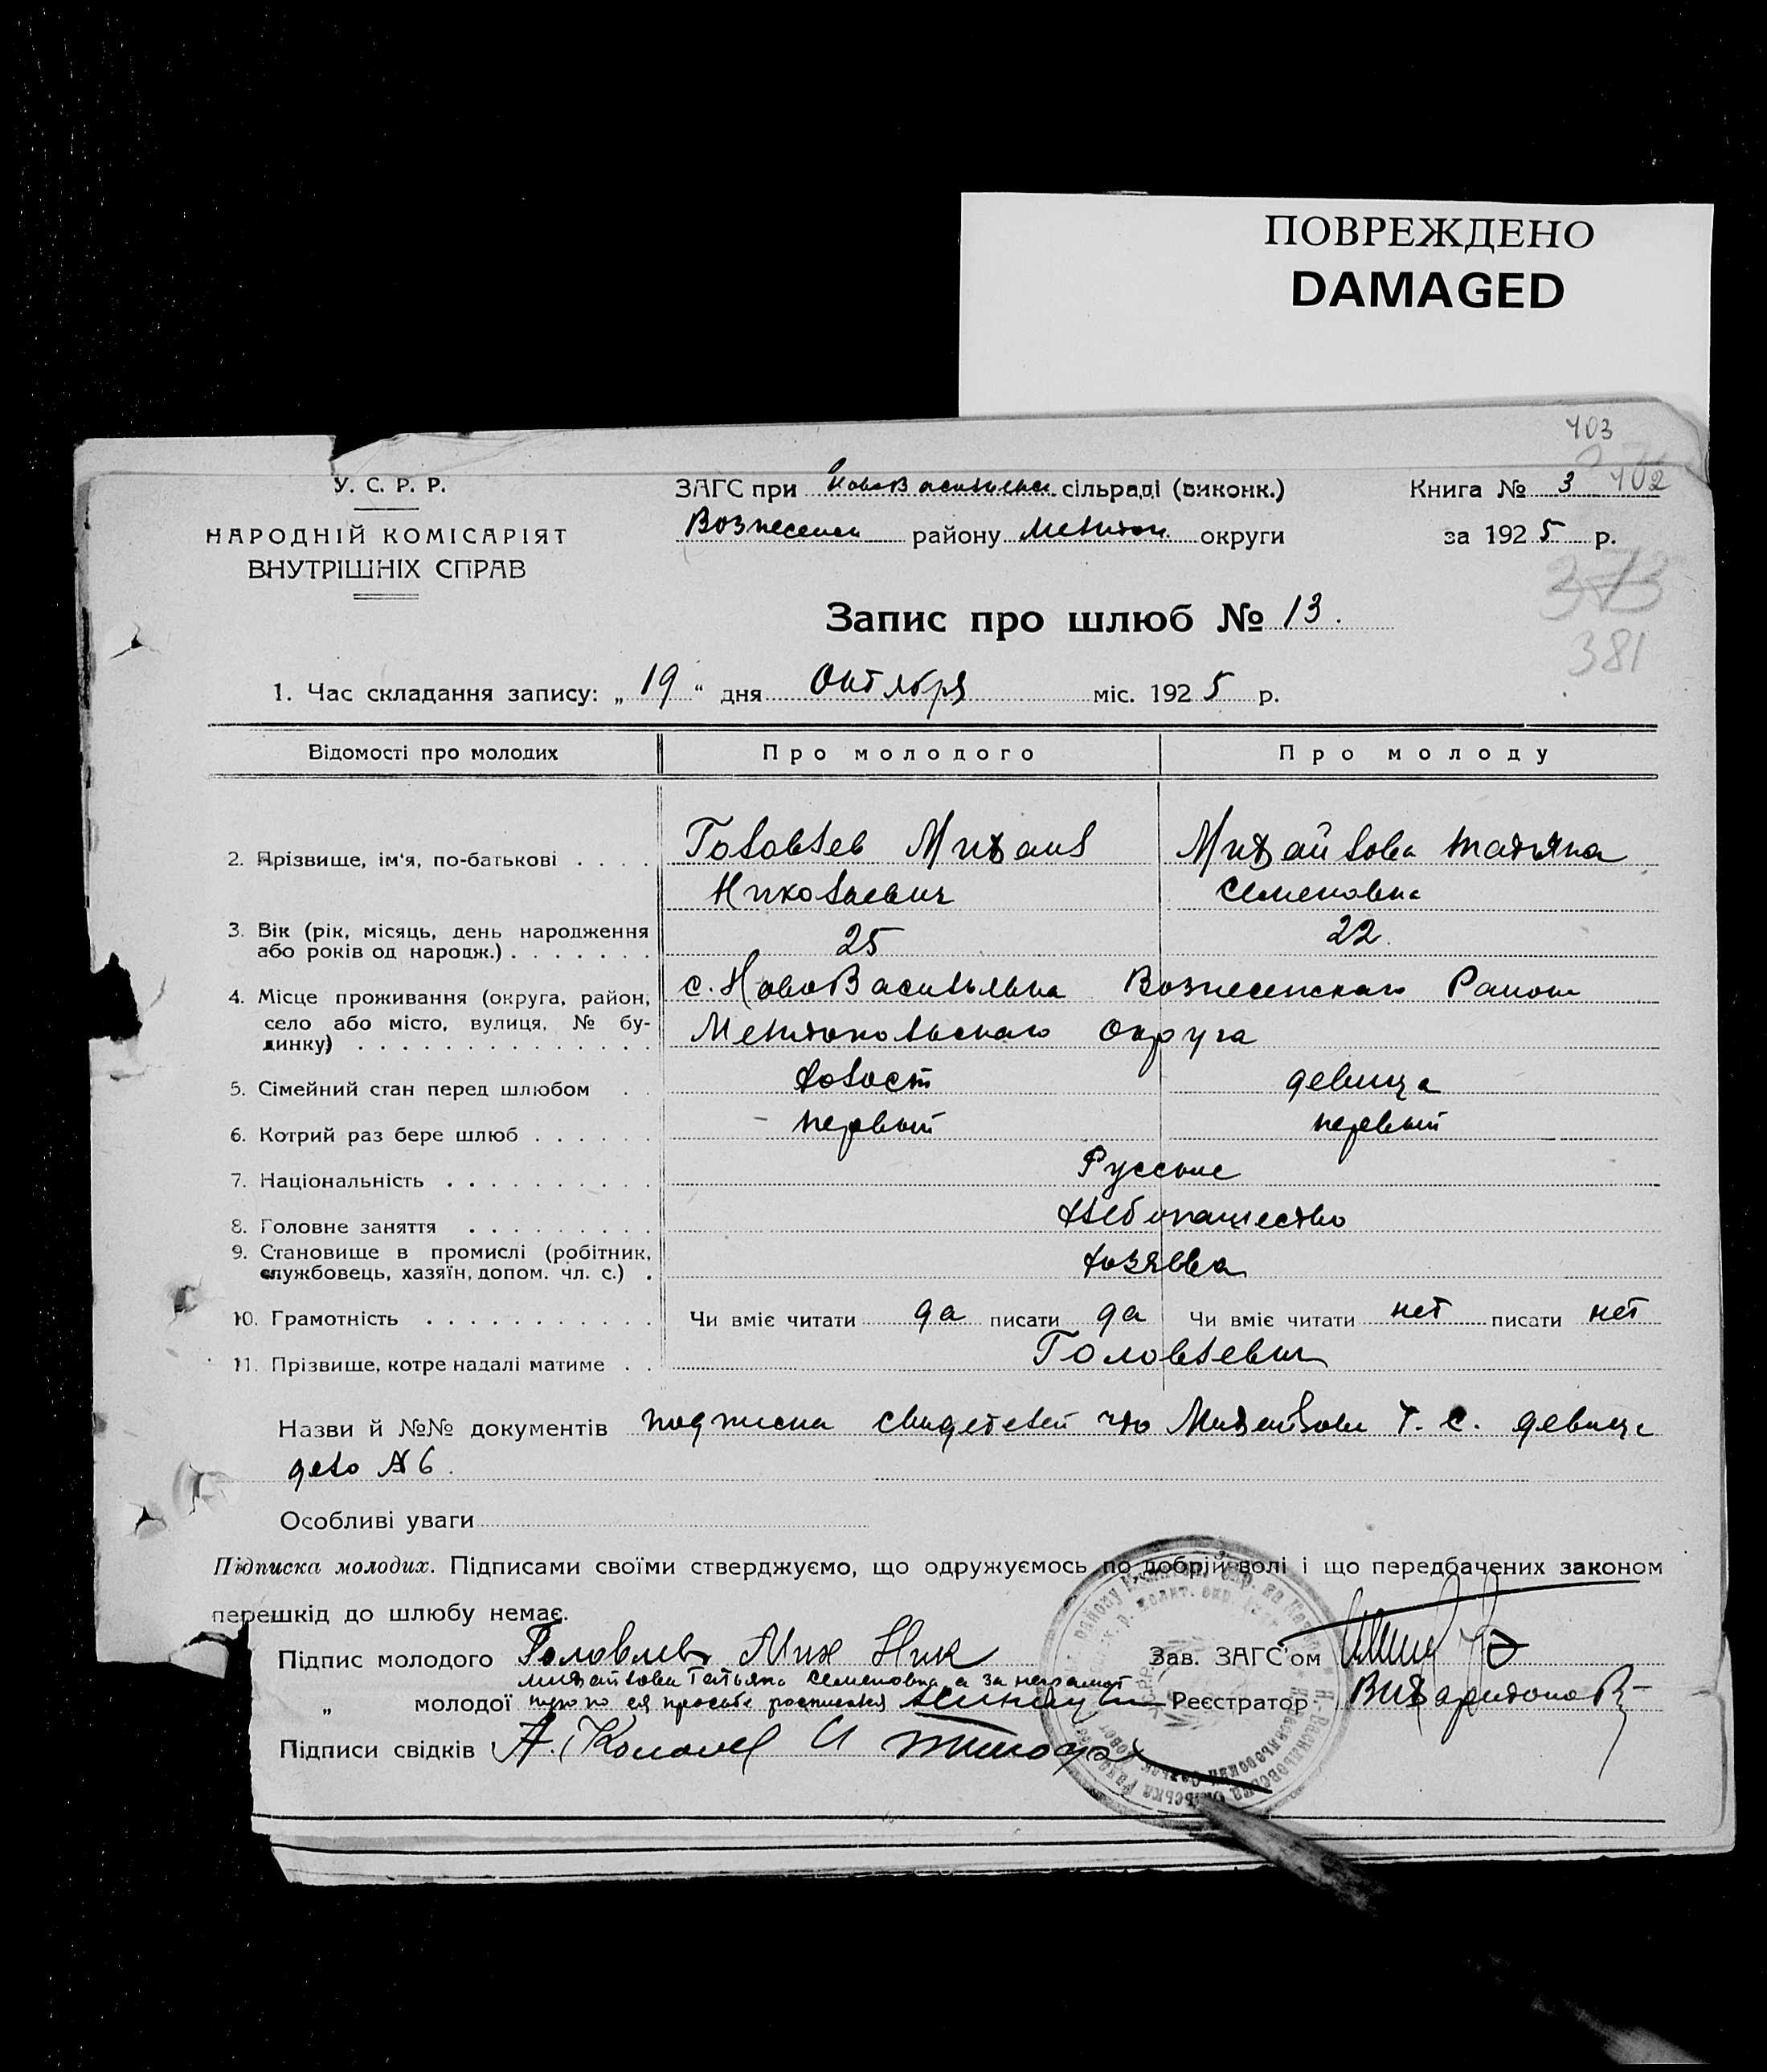 ПОВРЕЖДЕНО
DAMAGED
403
402
У. С. Р. Р.
НАРОДНІЙ КОМІСАРІЯТ
ВНУТРІШНІХ СПРАВ
ЗАГС при НовоВасильевск. сільраді (виконк.)
Вознесенск району Мелитоп. округи
Книга № 3
за 1925 р.
373
381
Запис про шлюб № 13.
1. Час складання запису: „ 19 “ дня Октября міс. 1925 р.
Відомості про молодих Про молодого Про молоду
2. Прізвище, ім'я, по-батькові . . . . Головлев Михаил Михайлова Татьяна
Николаевич Семеновна
3. Вік (рік, місяць, день народження
або років од народж.) . . . . . . . 25 22.
4. Місце проживання (округа, район, с. НовоВасильевка Вознесенскаго Района
село або місто, вулиця, № бу-
динку) . . . . . . . . . . . . . . Мелитопольскаго Округа
5. Сімейний стан перед шлюбом . . холост девица
6. Котрий раз бере шлюб . . . . . . первый первый
7. Національність . . . . . . . . . . Русские
8. Головне заняття . . . . . . . . . Хлебопашество
9. Становище в промислі (робітник,
службовець, хазяїн, допом. чл. с.) . хозяева
10. Грамотність . . . . . . . . . . . Чи вміє читати да писати да Чи вміє читати нет писати нет
11. Прізвище, котре надалі матиме . .
Назви й №№ документів подписка свидетелей что Михайлова Т. С. девица
дело № 6.
Особливі уваги
Підписка молодих. Підписами своїми стверджуємо, що одружуємось по добрій волі і що передбачених законом
перешкід до шлюбу немає.
Підпис молодого Головлев Мих Ник Зав. ЗАГС'ом
Михайлова Татьяна Семеновна а за неграмот
„ молодої ную по ея просьбе росписался Реєстратор
Підписи свідків А.